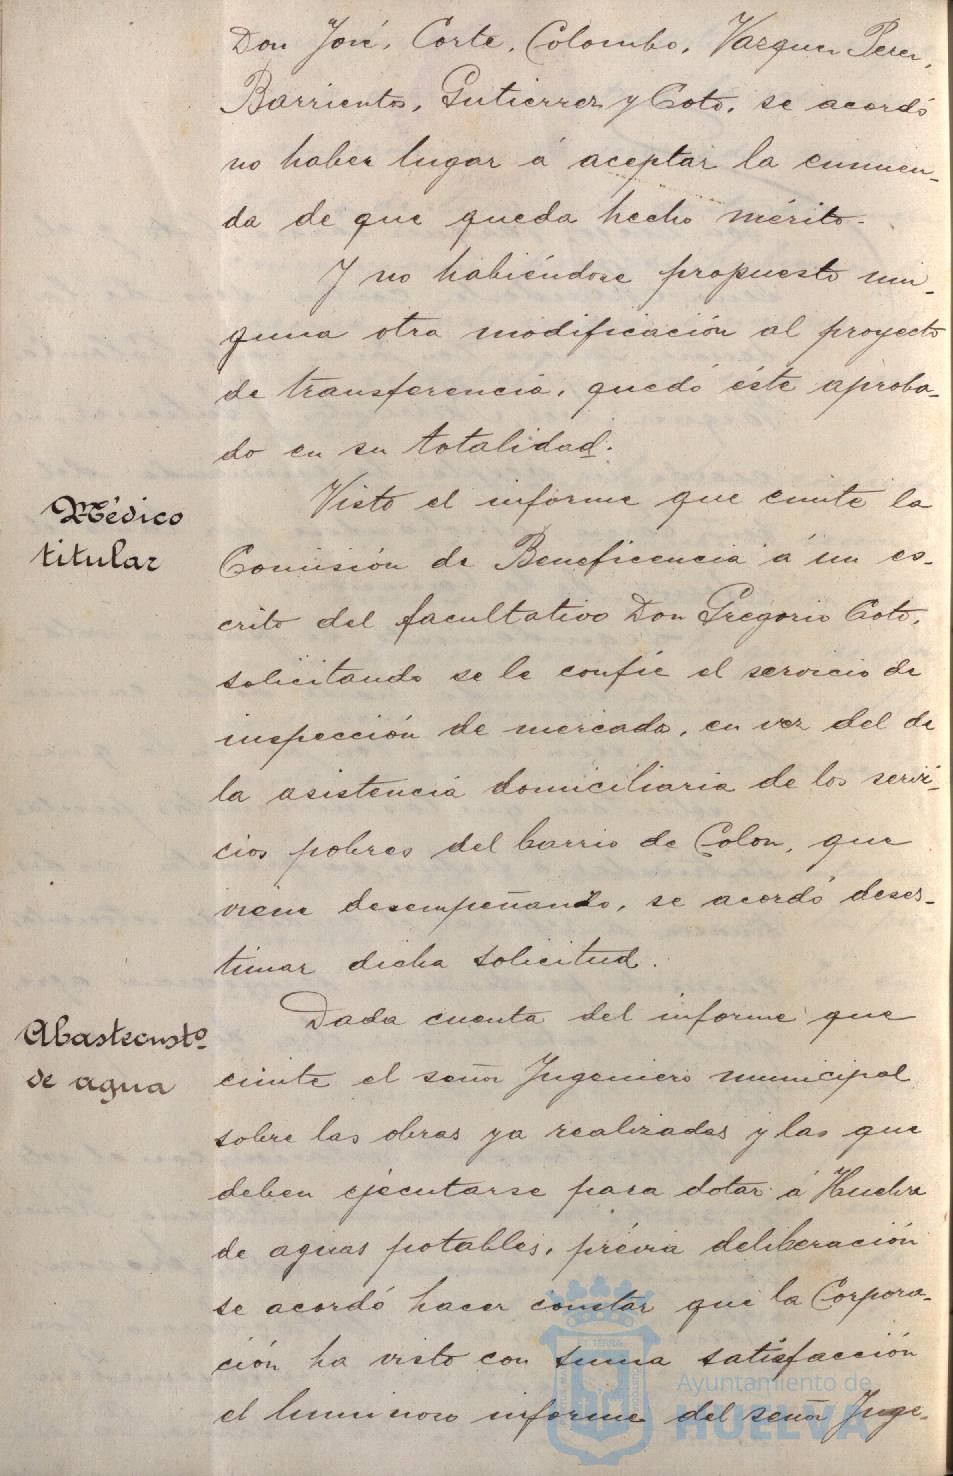 Don José, Corte, Colombo, Vazquez Perez,
Barrientos, Gutierrez y Coto, se acordó
no haber lugar á aceptar la enmien-
da de que queda hecho mérito.
Y no habiéndose propuesto nin-
guna otra modificación al proyecto
de transferencia, quedó éste aproba-
do en su totalidad.
Médico
titular
Visto el informe que emite la
Comisión de Beneficencia á un es-
crito del facultativo Don Gregorio Coto,
solicitando se le confie el servicio de
inspección de mercado, en vez del de
la asistencia domiciliaria de los servi-
cios pobres del barrio de Colon, que
viene desempeñando, se acordó deses-
timar dicha solicitud.
Abastecimtº
de agua
Dada cuenta del informe que
emite el señor Ingeniero municipal
sobre las obras ya realizadas y las que
deben ejecutarse para dotar á Huelva
de aguas potables, prévia deliberación
se acordó hacer constar que la Corpora-
ción ha visto con suma satisfacción
el luminoso informe del señor Inge-
Ayuntamiento de
HUELVA